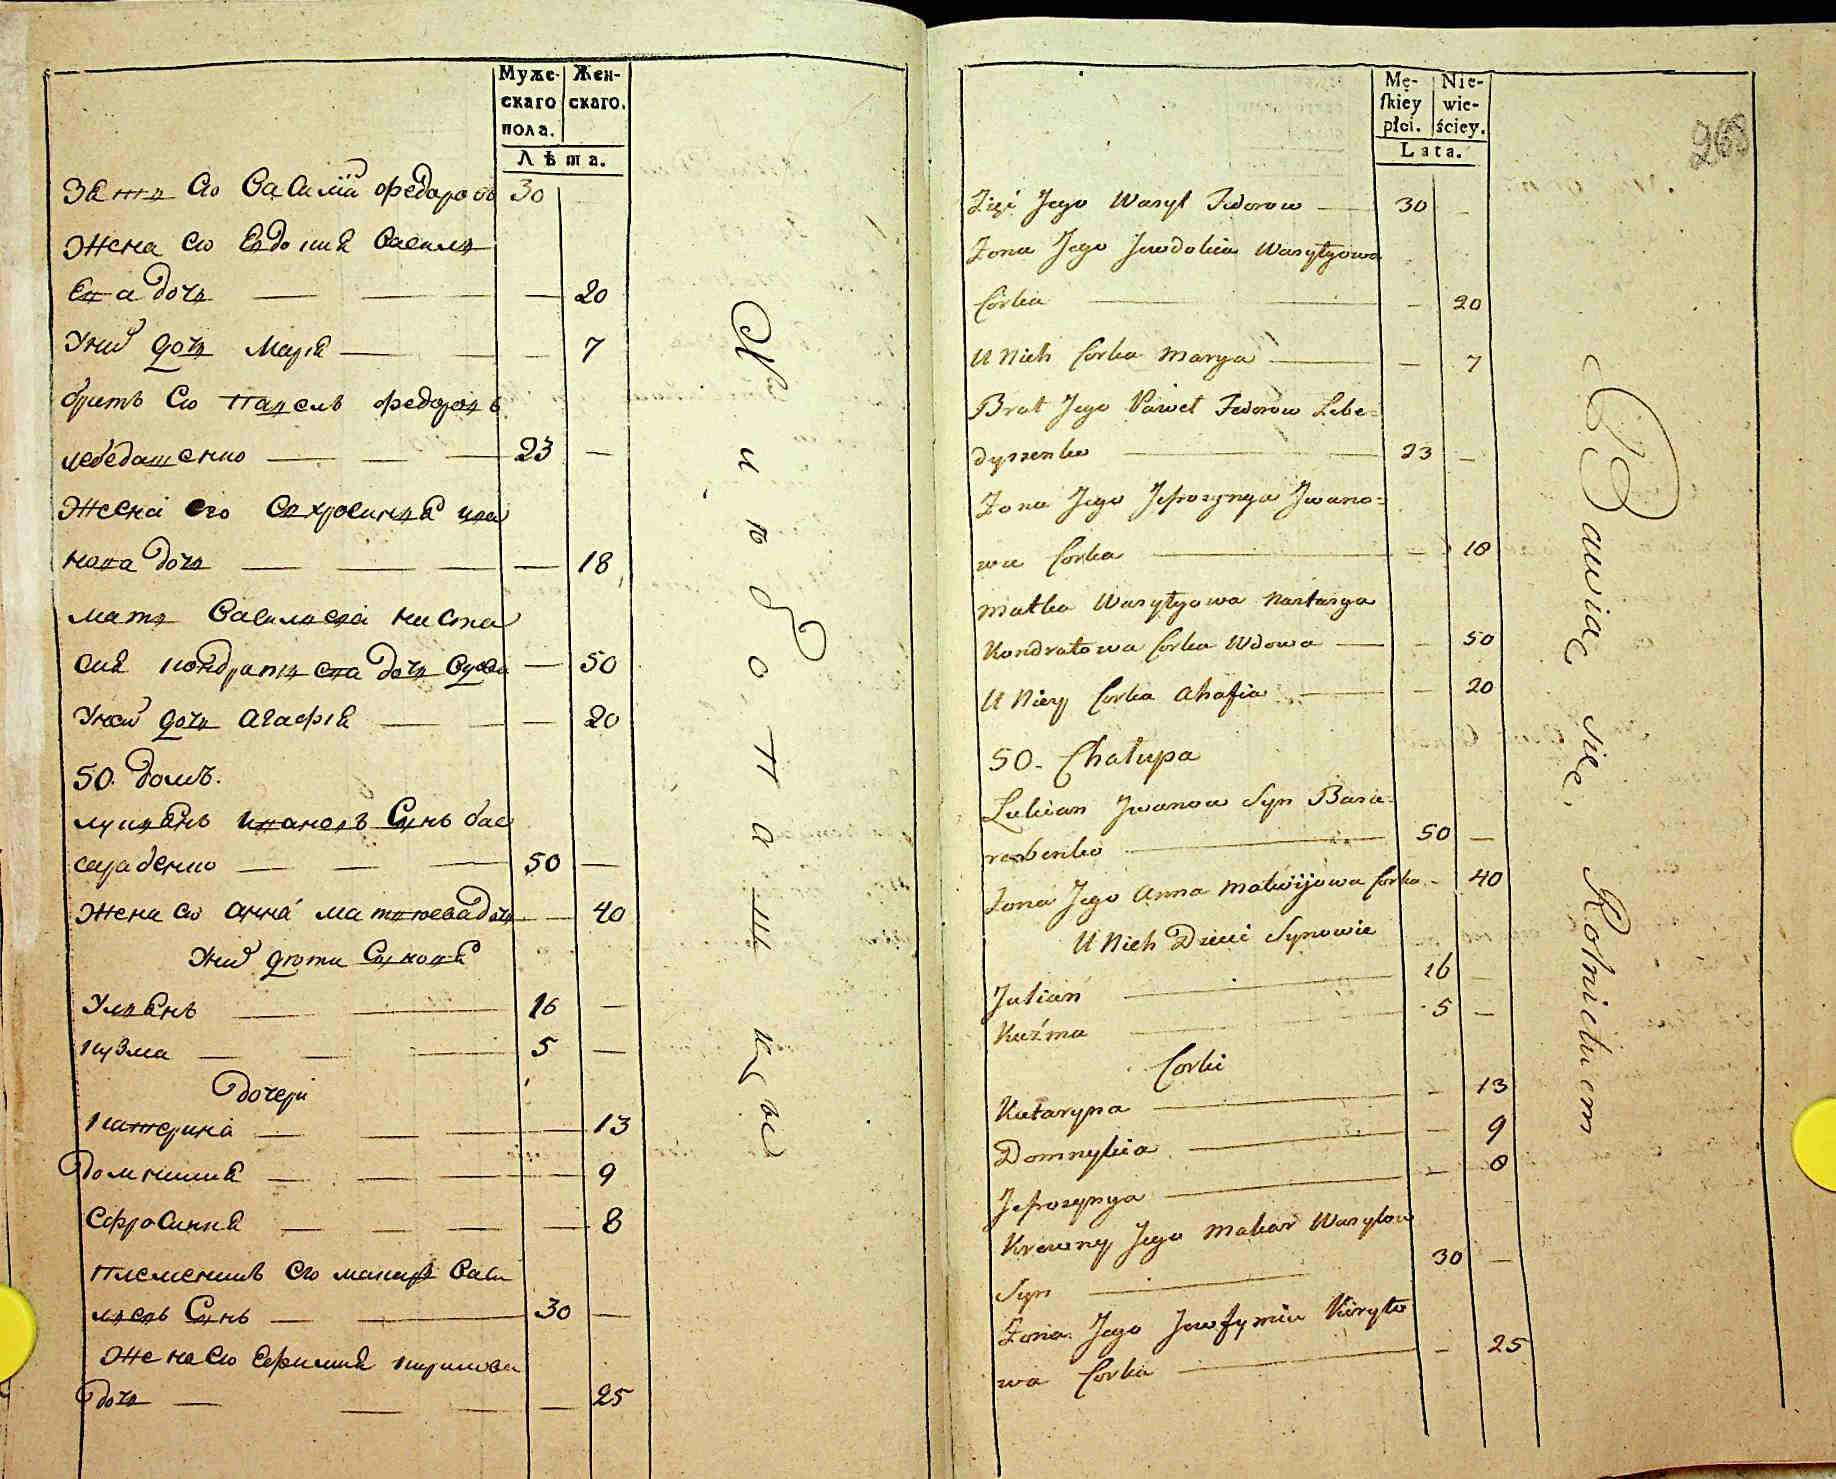 Муже-
скаго
пола.
Жен-
скаго.
Лѣта.
Зять Его Василїй федоровъ 30
Жена Его Евдокия Василь
Ева дочь — 20
У них дочь Мария — 7
братъ Его Павелъ федоровъ
лебедашенко — 23 —
Жена его Евхросиния ива
нова дочь — 18
мать Василева Наста
сия кондратьева дочь вдова — 50
У ней дочь Агафия — 20
50. домъ.
лукиянъ ивановъ Сынъ бас
сарабенко — 50 —
Жена Его Анна матвеева дочь — 40
У них дети Сыновя
Улиянъ — 16 —
кузма — 5 —
дочери
катерина — 13
домникия — 9
Ефросиния — 8
племеникъ Его макаръ Васи
льевъ Сынъ — 30 —
Жена Его Ефимия кирилова
дочь — 25
Хлѣбопашцы
Mę-
skiey
płci.
Nie-
wie-
ściey.
Lata.
268
Zięć Jego Wasyl Fedorow — 30 —
Żona Jego Jewdokia Wasylyowa
Corka — 20
U Nich Corka Marya — 7
Brat Jego Paweł Fedorow Lebe=
dyszenko — 23 —
Żona Jego Jefrozynya Jwano=
wa Corka — 18
Matka Wasylyowa Nastasya
Kondratowa Corka Wdowa — 50
U Niey Corka Ahafia — 20
50. Chałupa
Lukian Jwanow Syn Basa-
rabenko — 50 —
Żona Jego Anna Matwijowa Corka — 40
U Nich Dzieci Synowie
Julian — 16 —
Kuźma — 5 —
Corki
Kataryna — 13
Domnykia — 9
Jefrozynya — 8
Krewny Jego Makar Wasylow
Syn — 30 —
Żona Jego Jewfymia Kiryło
wa Corka — 25
Bawiąc się Rolnictwem